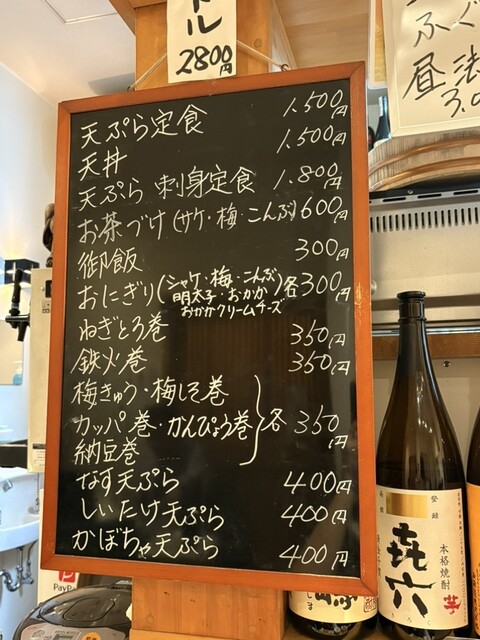 トル
2800円
ふぐ
昼
3.0
天ぷら定食 1.500円
天丼 1.500円
天ぷら 刺身定食 1.800円
お茶づけ(サケ・梅・こんぶ)600円
御飯 300円
おにぎり(シャケ・梅・こんぶ 明太子・おかか おかかクリームチーズ)各300円
ねぎとろ巻 350円
鉄火巻 350円
梅きゅう・梅しそ巻
カッパ巻・かんぴょう巻 各350円
納豆巻
なす天ぷら 400円
しいたけ天ぷら 400円
かぼちゃ天ぷら 400円
登録
㐂六
本格焼酎
芋
PayP